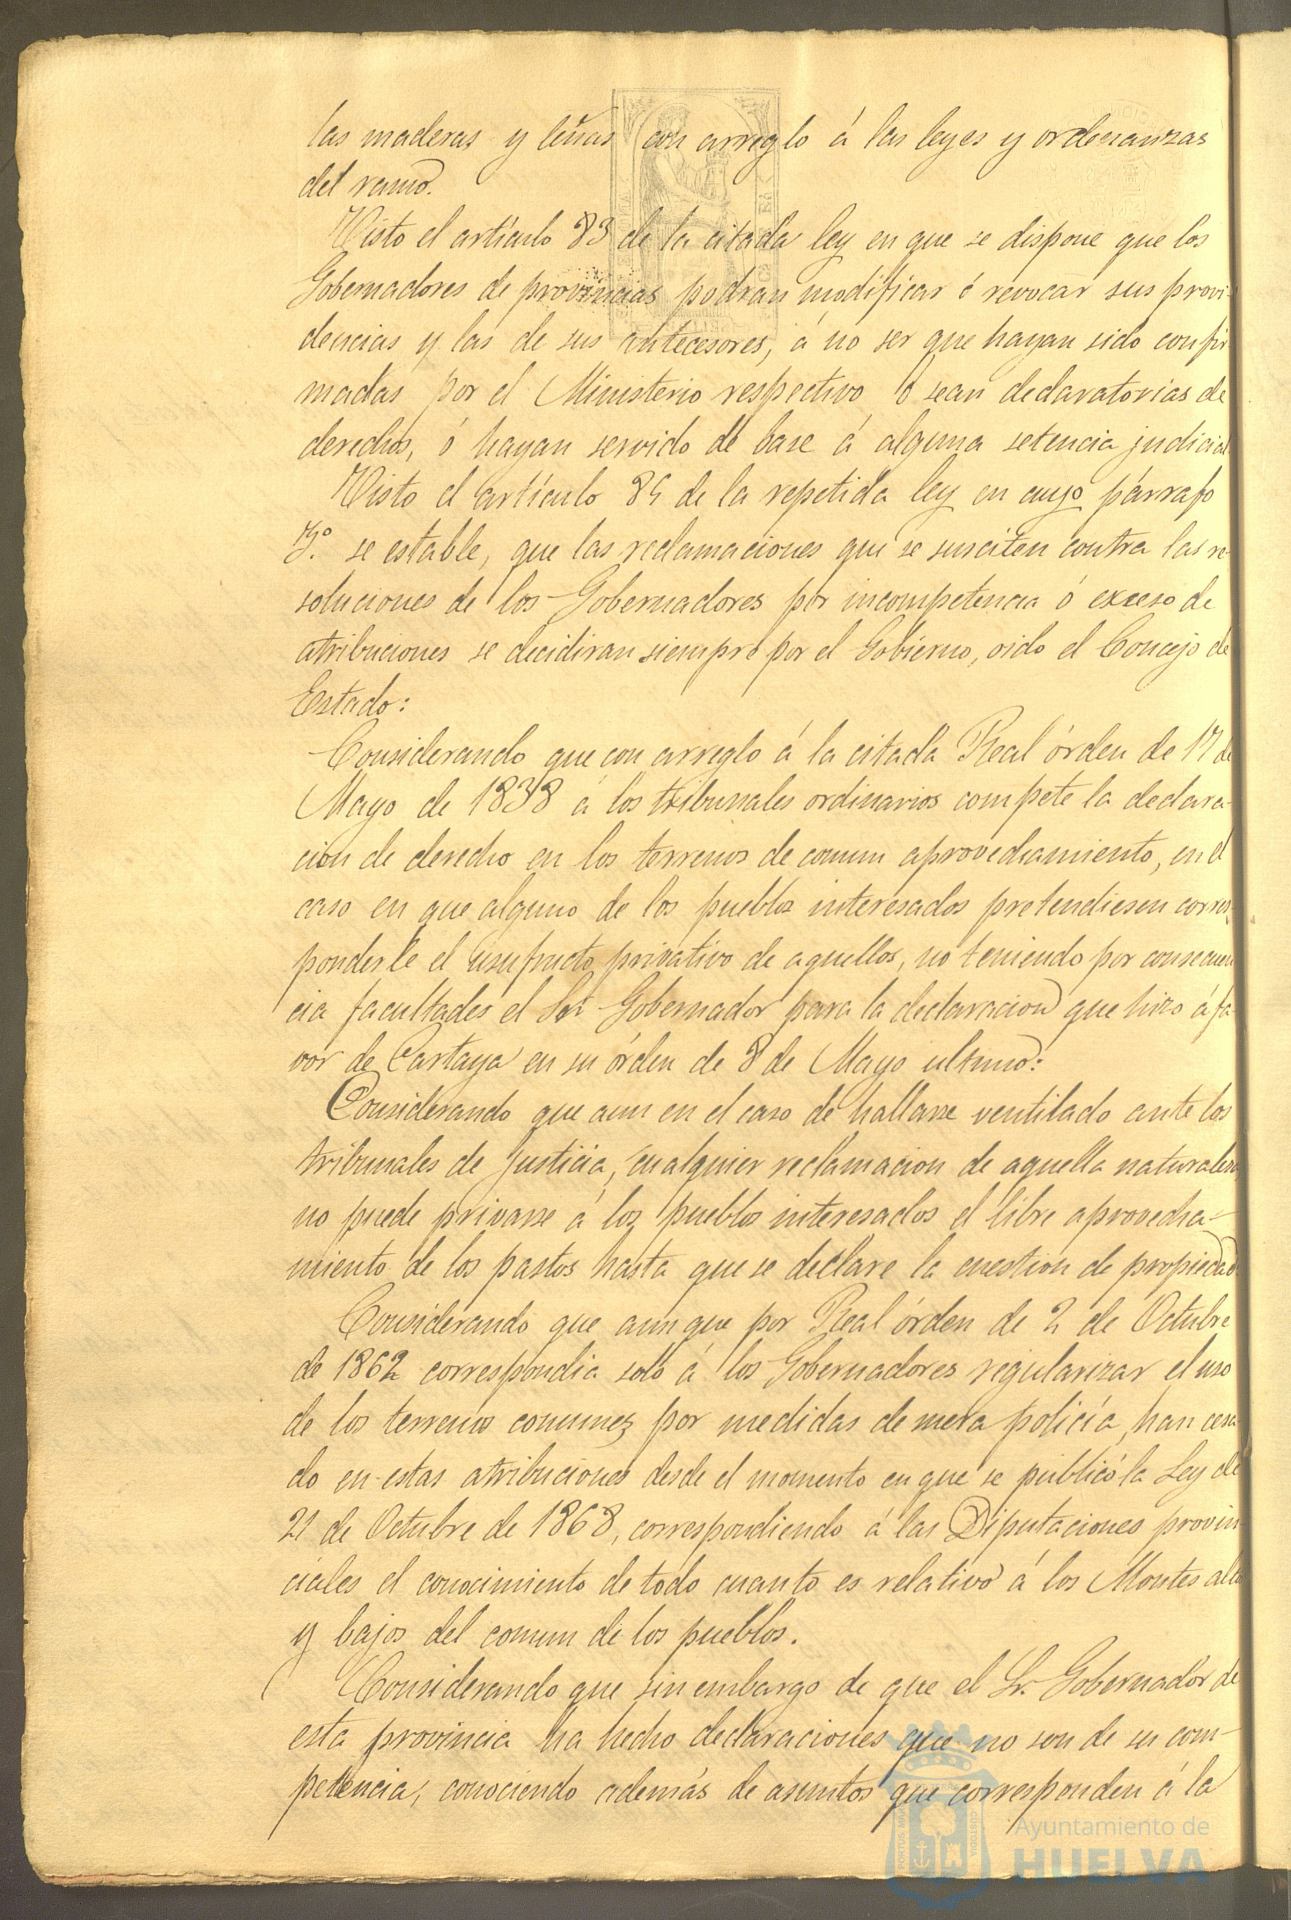 las maderas y leñas con arreglo á las leyes y ordenanzas
del ramo.
Visto el artículo 83 de la citada ley en que se dispone que los
Gobernadores de provincias podran modificar ó revocar sus provi-
dencias y las de sus antecesores, á no ser que hayan sido confir
madas por el Ministerio respectivo ó sean declaratorias de
derechos, ó hayan servido de base á alguna setencia judicial
Visto el artículo 84 de la repetida ley en cuyo párrafo
3º. se estable, que las reclamaciones que se susciten contra las re
soluciones de los Gobernadores por incompetencia ó exceso de
atribuciones se decidiran siempre por el Gobierno, oido el Concejo de
Estado:
Considerando que con arreglo á la citada Real órden de 17 de
Mayo de 1838 á los tribunales ordinarios compete la declara-
cion de derecho en los terrenos de comun aprovechamiento, en el
caso en que alguno de los pueblos interesados pretendiesen corres-
ponderle el usufructo privativo de aquellos, no teniendo por consecuen
cia facultades el Sr. Gobernador para la declaracion que hizo á fa-
vor de Cartaya en su órden de 8 de Mayo ultimo:
Considerando que aun en el caso de hallarse ventilado ante los
tribunales de Justicia, cualquier reclamacion de aquella naturaleza
no puede privarse á los pueblos interesados el libre aprovecha-
miento de los pastos hasta que se declare la cuestion de propiedad.
Considerando que aunque por Real órden de 2 de Octubre
de 1862 correspondia solo á los Gobernadores regularizar el uso
de los terrenos comunes por medidas de mera policía, han cesa
do en estas atribuciones desde el momento en que se publicó la Ley de
21 de Octubre de 1868, correspondiendo á las Diputaciones provin
ciales el conocimiento de todo cuanto es relativo á los Montes altos
y bajos del comun de los pueblos.
Considerando que sin embargo de que el Sr. Gobernador de
esta provincia ha hecho declaraciones que no son de su com-
petencia, conociendo además de asuntos que corresponden á la
Ayuntamiento de
HUELVA